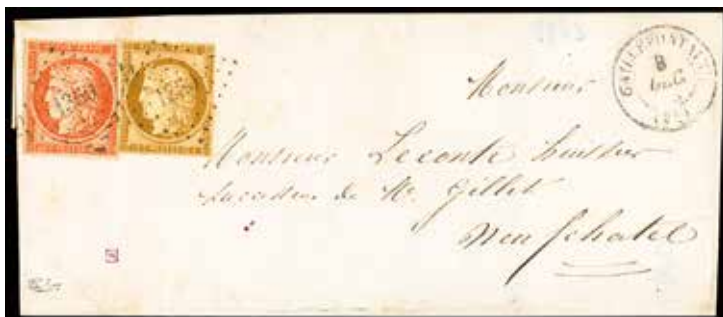 GAILLEFONTAINE
8
DEC.
Monsieur
Monsieur Leconte huissier
Successeur de Mr. Gillet
Neufchatel